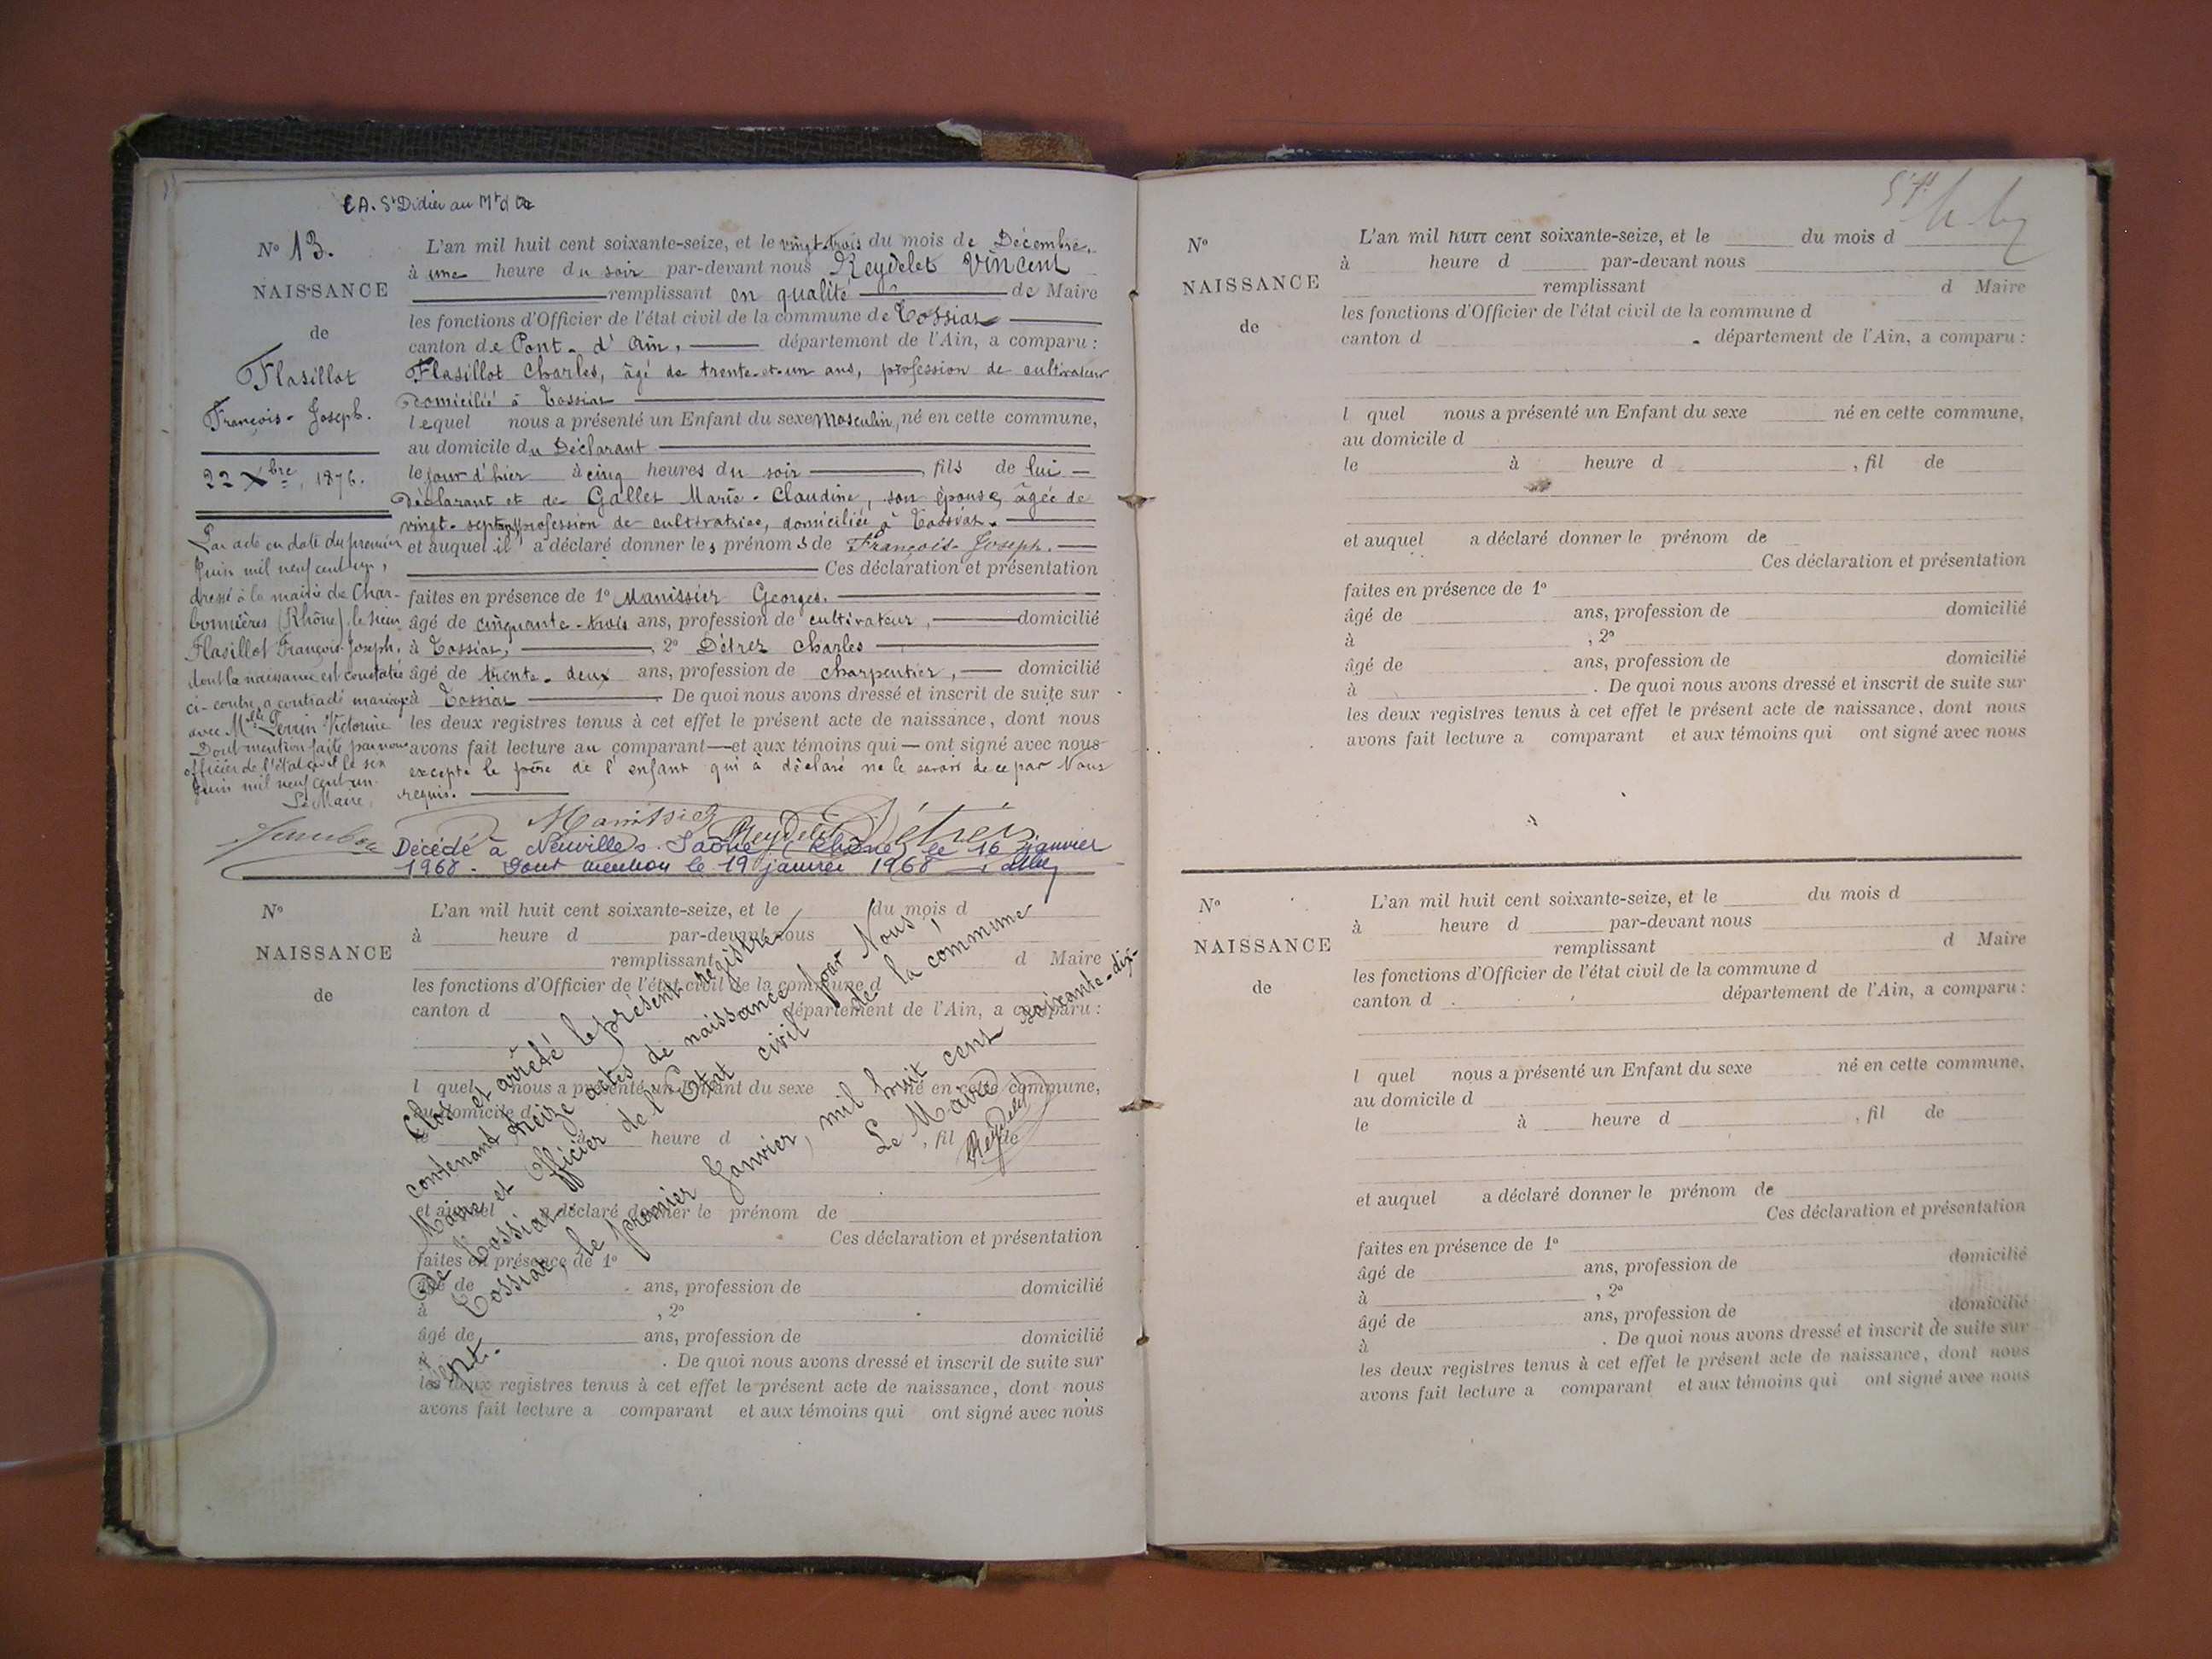 CA. St Didier au Mt d'Or
N° 13.
NAISSANCE
de
Flasillot
François-Joseph.
22 Xbre, 1876.
Par acte en date du premier
Juin mil neuf cent un,
dressé à la mairie de Char-
bonnières (Rhône), le sieur
Flasillot François-Joseph,
dont la naissance est constatée
ci-contre, a contracté mariage
avec Mlle Perrin Victorine
Dont mention faite par nous
officier de l'état civil le six
Juin mil neuf cent un
Le Maire,
L'an mil huit cent soixante-seize, et le vingt-trois du mois de Décembre,
à une heure du soir par-devant nous Reydelet Vincent
remplissant en qualité de Maire
les fonctions d'Officier de l'état civil de la commune de Tossiat
canton de Pont-d'Ain, département de l'Ain, a comparu :
Flasillot Charles, âgé de trente-et-un ans, profession de cultivateur
domicilié à Tossiat
lequel nous a présenté un Enfant du sexe masculin, né en cette commune,
au domicile du Déclarant
le jour d'hier à cinq heures du soir , fils de lui
Déclarant et de Gallet Marie-Claudine, son épouse, âgée de
vingt-sept ans, profession de cultivatrice, domiciliée à Tossiat.
et auquel il a déclaré donner les prénoms de François-Joseph.
Ces déclaration et présentation
faites en présence de 1° Manissier Georges.
âgé de cinquante-trois ans, profession de cultivateur, domicilié
à Tossiat, , 2° Détrez Charles
âgé de trente-deux ans, profession de charpentier, domicilié
à Tossiat . De quoi nous avons dressé et inscrit de suite sur
les deux registres tenus à cet effet le présent acte de naissance, dont nous
avons fait lecture au comparant et aux témoins qui ont signé avec nous
excepté le père de l'enfant qui a déclaré ne le savoir de ce par Nous
requis.
Manissier Reydelet Détrez
Décédé à Neuville s. Saône (Rhône) le 16 janvier
1968. Dont mention le 19 janvier 1968
N°
NAISSANCE
de
L'an mil huit cent soixante-seize, et le du mois d
à heure d par-devant nous
remplissant d Maire
les fonctions d'Officier de l'état civil de la commune d
canton d département de l'Ain, a comparu :
l quel nous a présenté un Enfant du sexe né en cette commune,
au domicile d
le à heure d , fil de
et auquel a déclaré donner le prénom de
Ces déclaration et présentation
faites en présence de 1°
âgé de ans, profession de domicilié
à , 2°
âgé de ans, profession de domicilié
à . De quoi nous avons dressé et inscrit de suite sur
les deux registres tenus à cet effet le présent acte de naissance, dont nous
avons fait lecture a comparant et aux témoins qui ont signé avec nous
Clos et arrêté le présent registre
contenant treize actes de naissance par Nous,
Maire et Officier de l'Etat civil de la commune
de Tossiat.
Tossiat, le premier Janvier, mil huit cent soixante-dix-
sept.
Le Maire
Reydelet
N°
NAISSANCE
de
L'an mil huit cent soixante-seize, et le du mois d
à heure d par-devant nous
remplissant d Maire
les fonctions d'Officier de l'état civil de la commune d
canton d département de l'Ain, a comparu :
l quel nous a présenté un Enfant du sexe né en cette commune,
au domicile d
le à heure d , fil de
et auquel a déclaré donner le prénom de
Ces déclaration et présentation
faites en présence de 1°
âgé de ans, profession de domicilié
à , 2°
âgé de ans, profession de domicilié
à . De quoi nous avons dressé et inscrit de suite sur
les deux registres tenus à cet effet le présent acte de naissance, dont nous
avons fait lecture a comparant et aux témoins qui ont signé avec nous
N°
NAISSANCE
de
L'an mil huit cent soixante-seize, et le du mois d
à heure d par-devant nous
remplissant d Maire
les fonctions d'Officier de l'état civil de la commune d
canton d département de l'Ain, a comparu :
l quel nous a présenté un Enfant du sexe né en cette commune,
au domicile d
le à heure d , fil de
et auquel a déclaré donner le prénom de
Ces déclaration et présentation
faites en présence de 1°
âgé de ans, profession de domicilié
à , 2°
âgé de ans, profession de domicilié
à . De quoi nous avons dressé et inscrit de suite sur
les deux registres tenus à cet effet le présent acte de naissance, dont nous
avons fait lecture a comparant et aux témoins qui ont signé avec nous